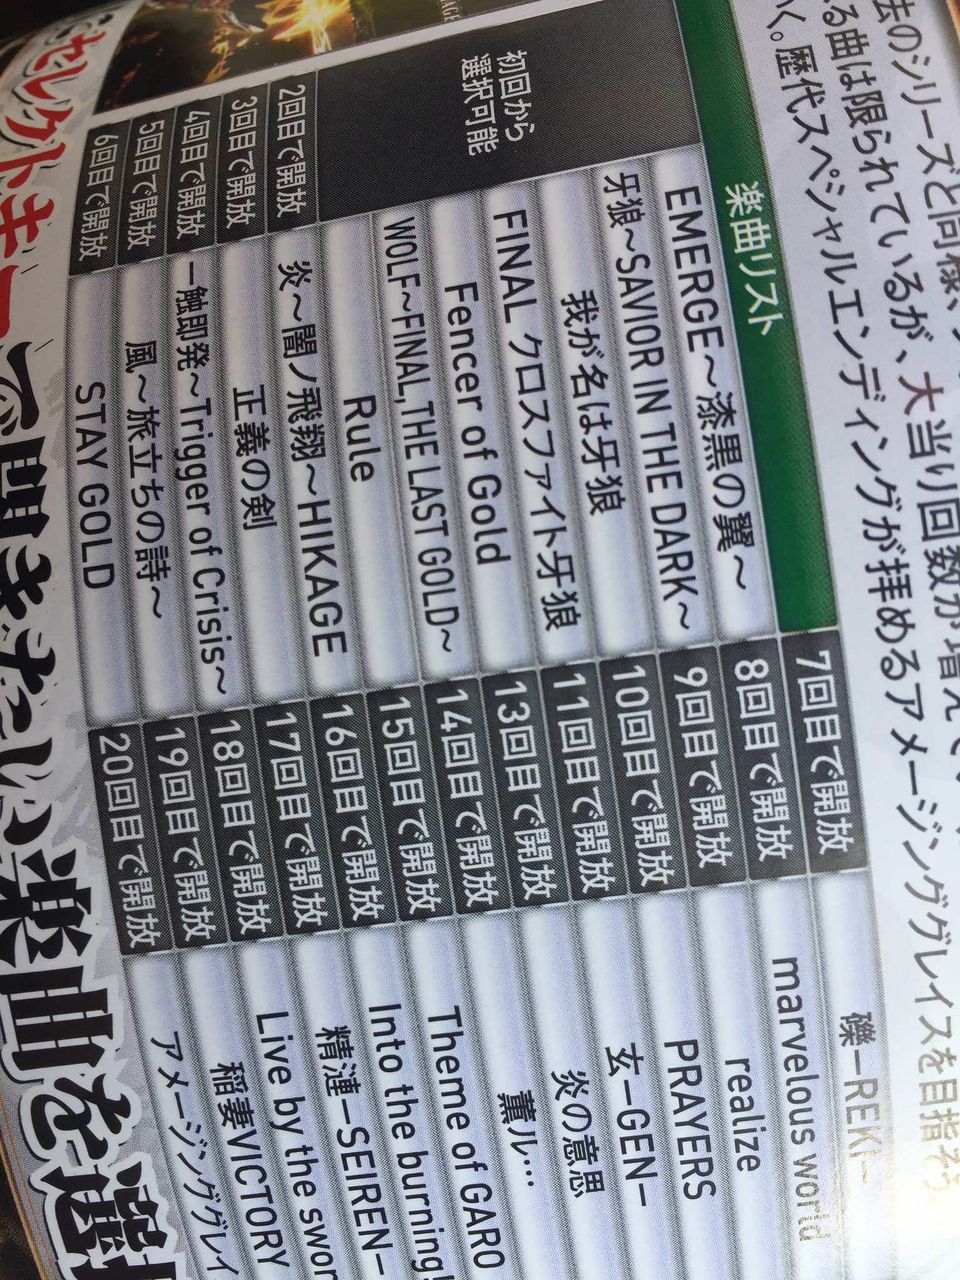 去のシリーズと同様、
る曲は限られているが、大当り回数が増えて
く。歴代スペシャルエンディングが拝めるアメージンググレイスを目指そう。
楽曲リスト
初回から
選択可能
EMERGE～漆黒の翼～
牙狼～SAVIOR IN THE DARK～
我が名は牙狼
FINAL クロスファイト牙狼
Fencer of Gold
WOLF～FINAL,THE LAST GOLD～
Rule
2回目で開放 炎～闇ノ飛翔～HIKAGE
3回目で開放 正義の剣
4回目で開放 一触即発～Trigger of Crisis～
5回目で開放 風～旅立ちの詩～
6回目で開放 STAY GOLD
7回目で開放 礫ーREKIー
8回目で開放 marvelous world
9回目で開放 realize
10回目で開放 PRAYERS
11回目で開放 玄ーGENー
13回目で開放 炎の意思
14回目で開放 薫ル…
15回目で開放 Theme of GARO
16回目で開放 Into the burning!
17回目で開放 精漣ーSEIRENー
18回目で開放 Live by the swor
19回目で開放 稲妻VICTORY
20回目で開放 アメージンググレイ
セレクトキーで聞きたい楽曲を選